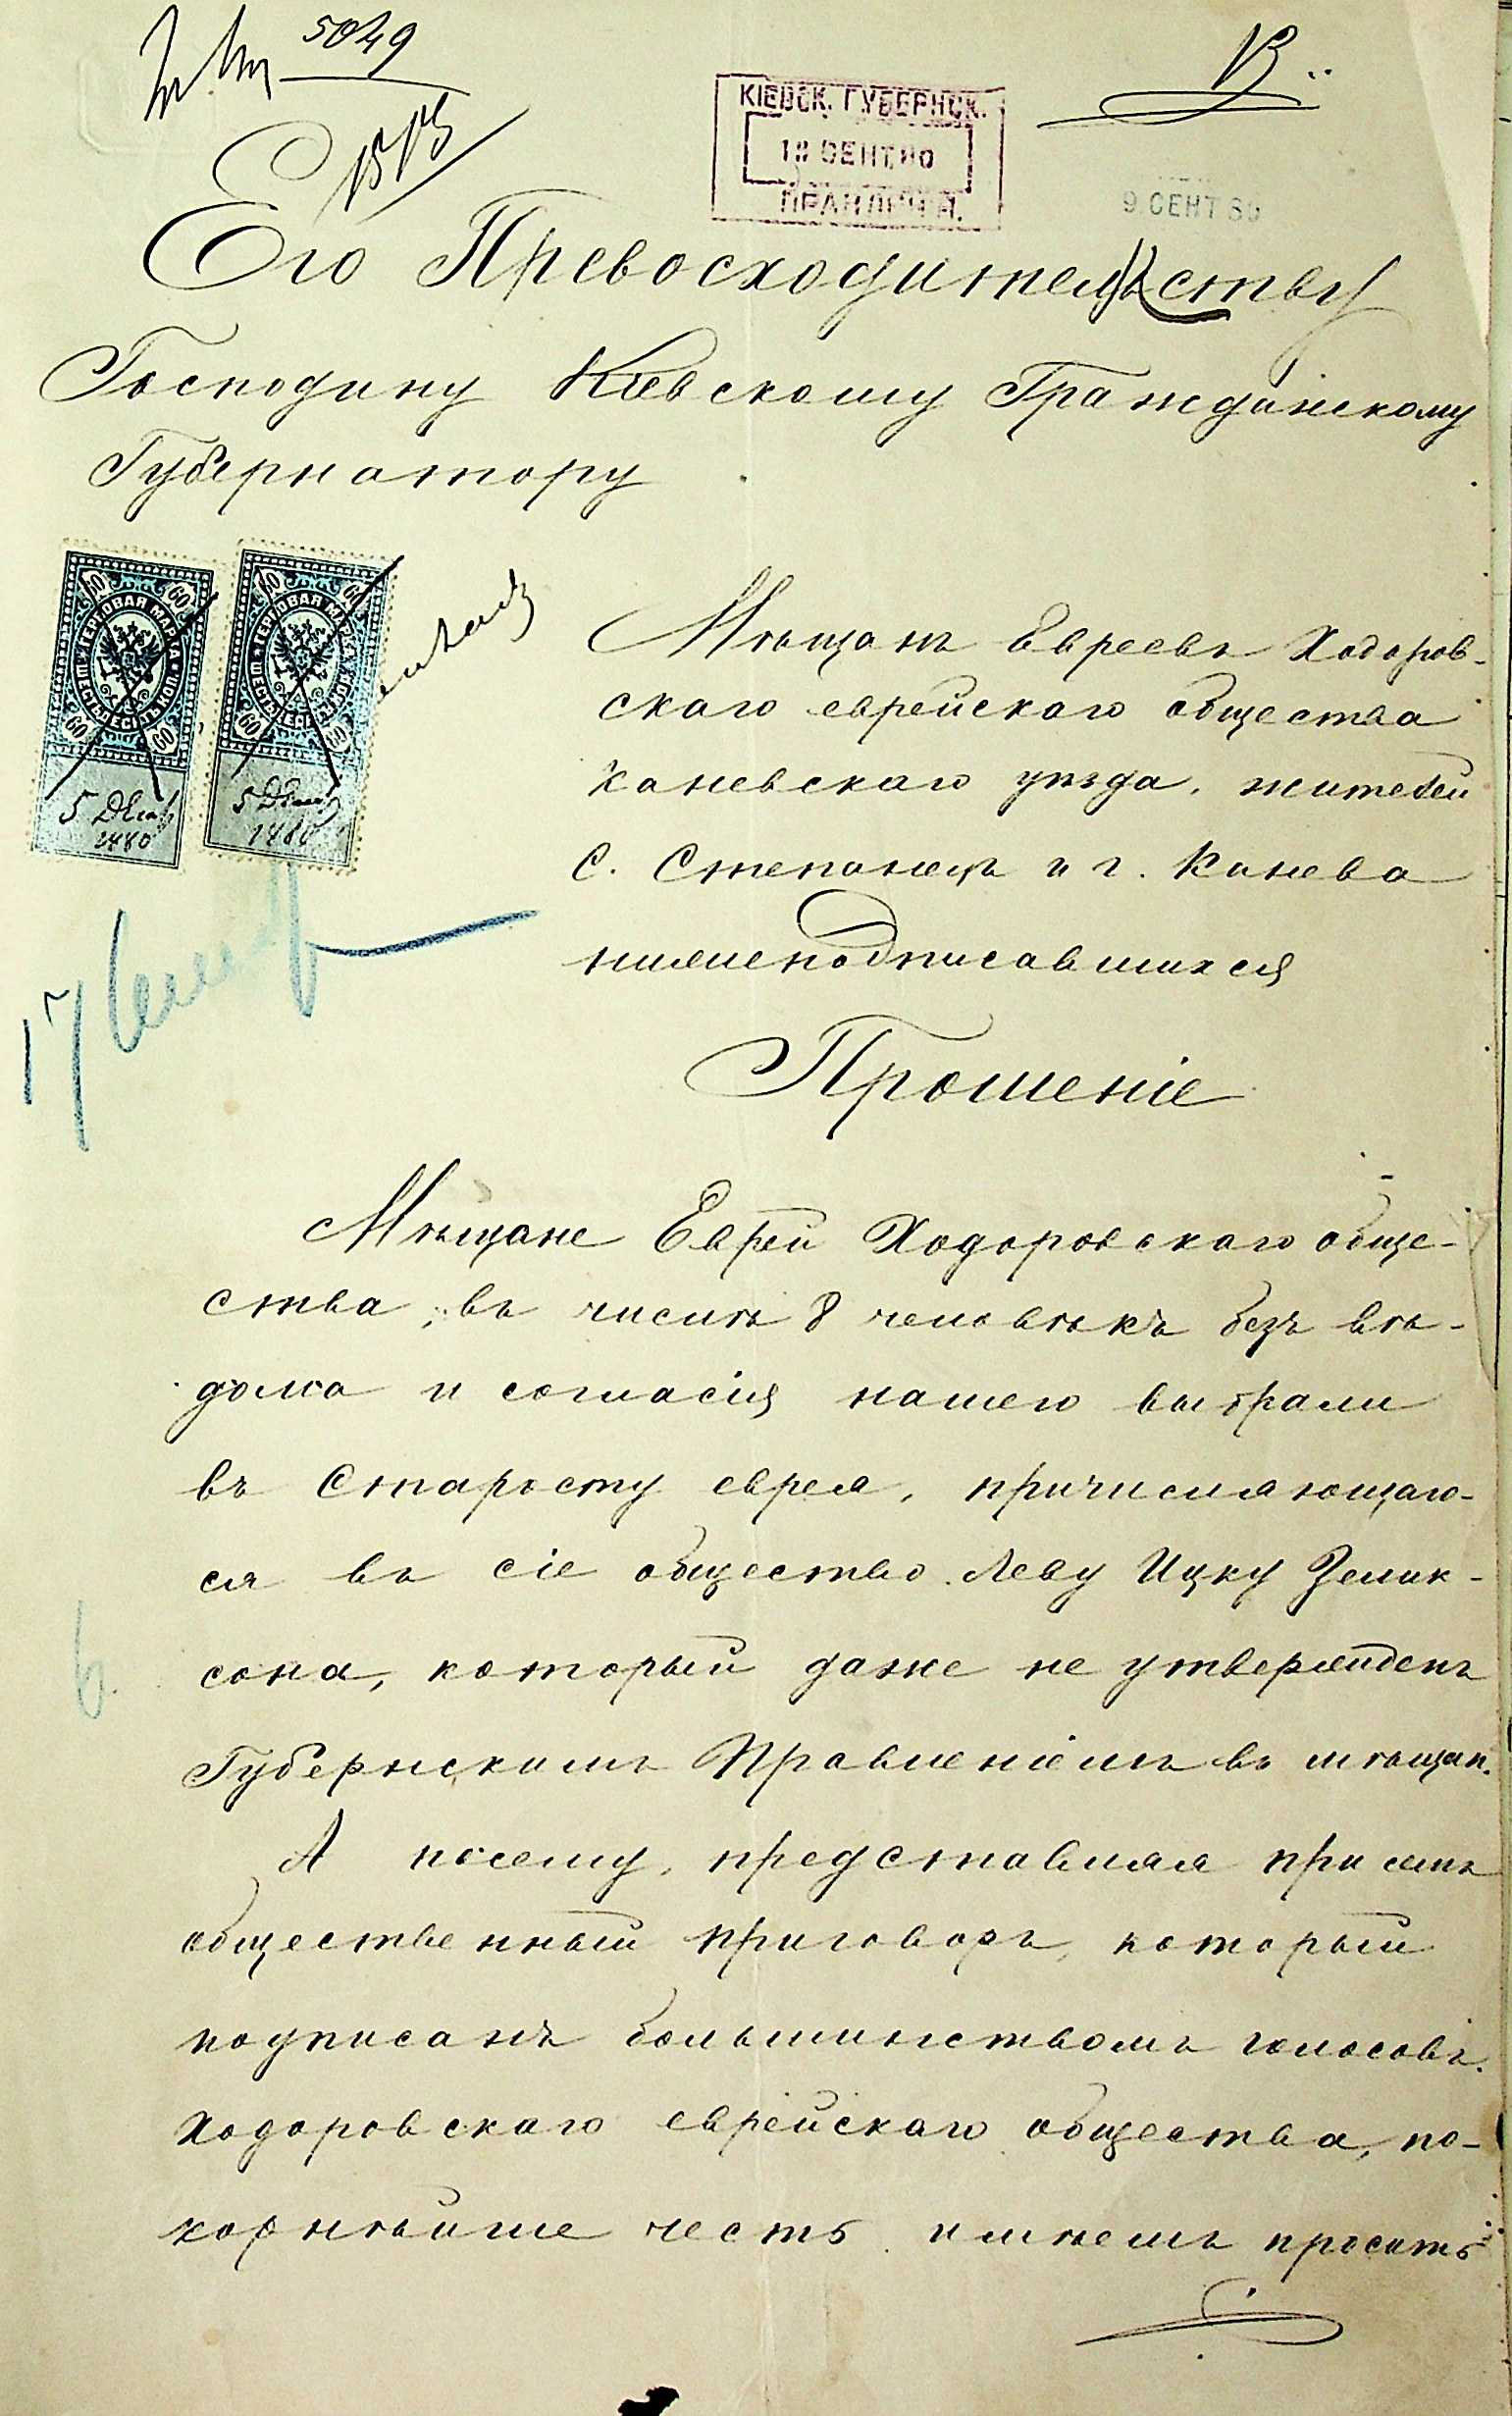 5049
КІЕВСК. ГУБЕРНСК.
СЕНТ. 80
ПРАВЛЕНІЯ.
9 СЕНТ 80
Его Превосходительству
Господину Кіевскому Гражданскому
Губернатору
ГЕРБОВАЯ МАРКА ШЕСТЬДЕСЯТЪ КОП.
60 60 60 60
5 Декаб
1880
ГЕРБОВАЯ МАРКА ШЕСТЬДЕСЯТЪ КОП.
60 60 60 60
5 Декаб
1880
Мѣщанъ Евреевъ Ходоров-
скаго еврейскаго общества
Каневскаго уѣзда, жителей
С. Степанецъ и г. Канева
нижеподписавшихся
17
Прошеніе
Мѣщане Евреи Ходоровскаго обще-
ства, въ числѣ 8 человѣкъ безъ вѣ-
дома и согласія нашего выбрали
въ Старосту еврея, причисляющаго-
ся въ сіе общество Леву Ицку Зелик-
сона, который даже не утвержденъ
Губернскимъ Правленіемъ въ мѣщан.
А посему, представляя при семъ
общественный приговоръ, который
подписанъ большинствомъ голосовъ
Ходоровскаго еврейскаго общества, по-
корнѣйше честь имѣемъ просить